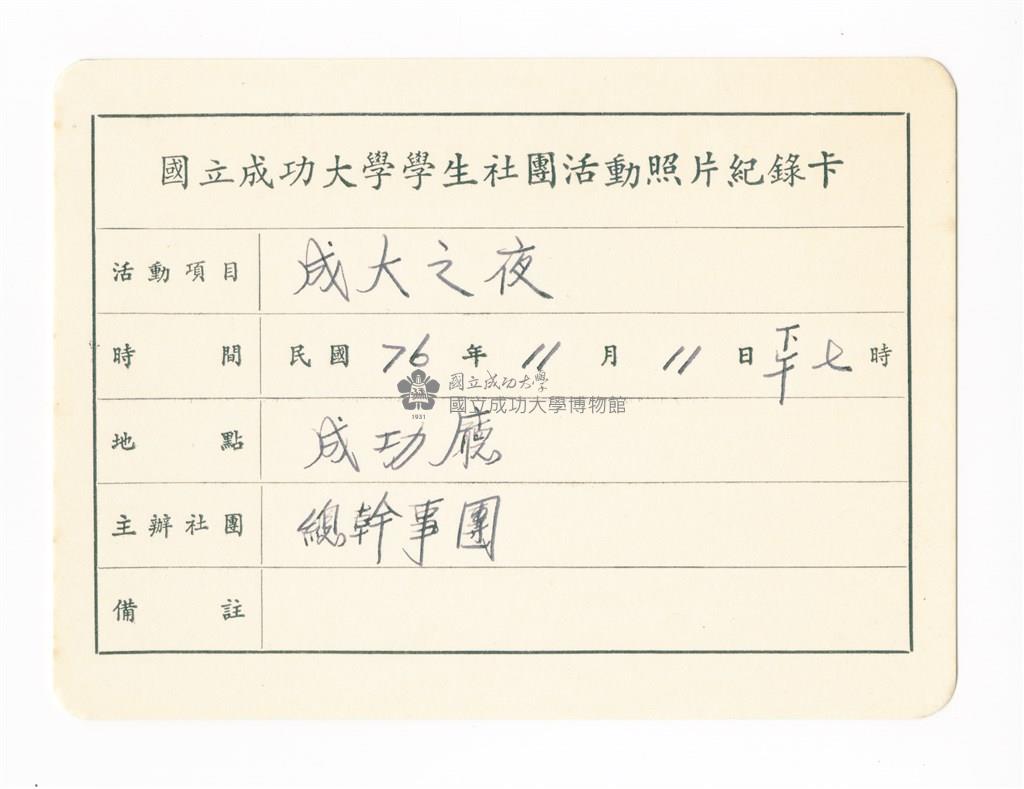 國立成功大學學生社團活動照片紀錄卡
活動項目 成大之夜
時間 民國 76 年 11 月 11 日 下午 七 時
國立成功大學
國立成功大學博物館
1931
地點 成功廳
主辦社團 總幹事團
備註